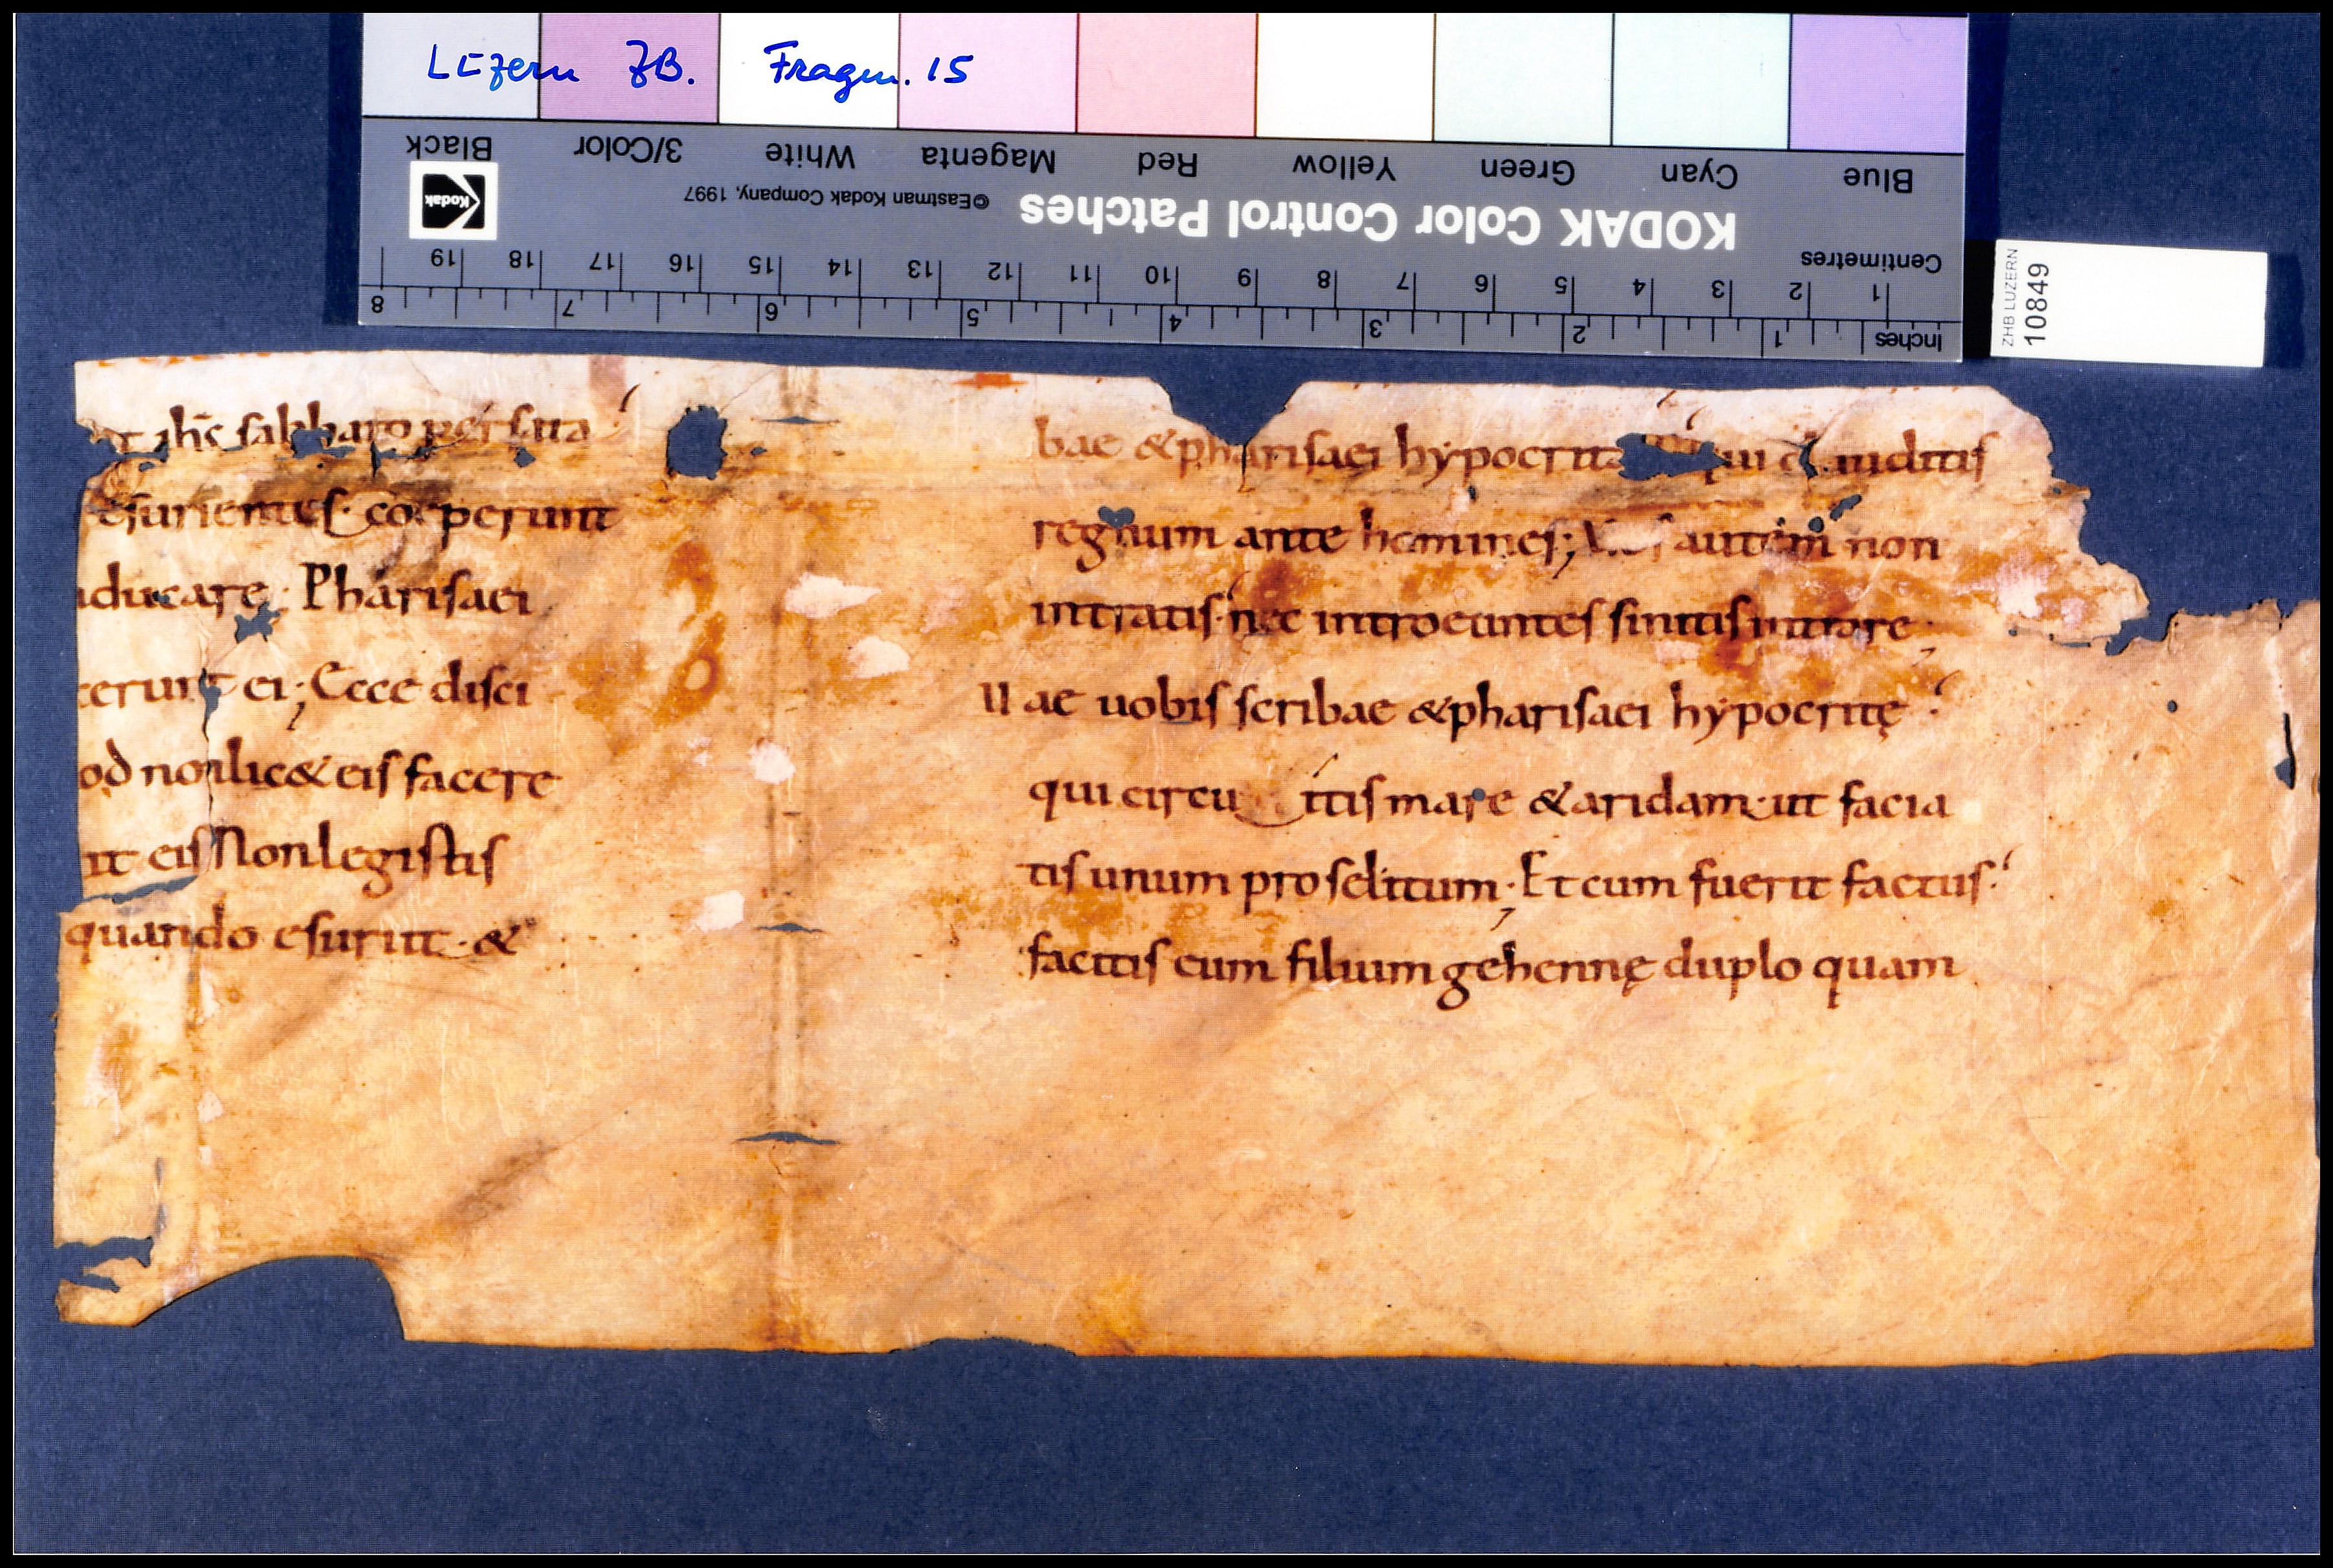 LUzern ZB. Fragm. 15
Black 3/Color White Magenta Red Yellow Green Cyan Blue
Kodak
©Eastman Kodak Company, 1997
KODAK Color Control Patches
Centimetres
19 18 17 16 15 14 13 12 11 10 9 8 7 6 5 4 3 2 1
8 7 6 5 4 3 2 1
Inches
ZHB LUZERN
10849
ihs sabbato per sata
esurientes· coeperunt
aducare; Pharisaei
cerunt ei; Ecce disci
od non lic& eis facere
it eis Non legistis
quando esuriit· &
bae & pharisaei hypocrita qui clauditis
regnum ante homines; Vos autem non
intratis· nec introeuntes sinitis intrare;
Uae uobis scribae & pharisaei hypocritę
qui circu itis mare & aridam· ut facia
tis unum proselitum; Et cum fuerit factus·
facitis eum filium gehennę duplo quam